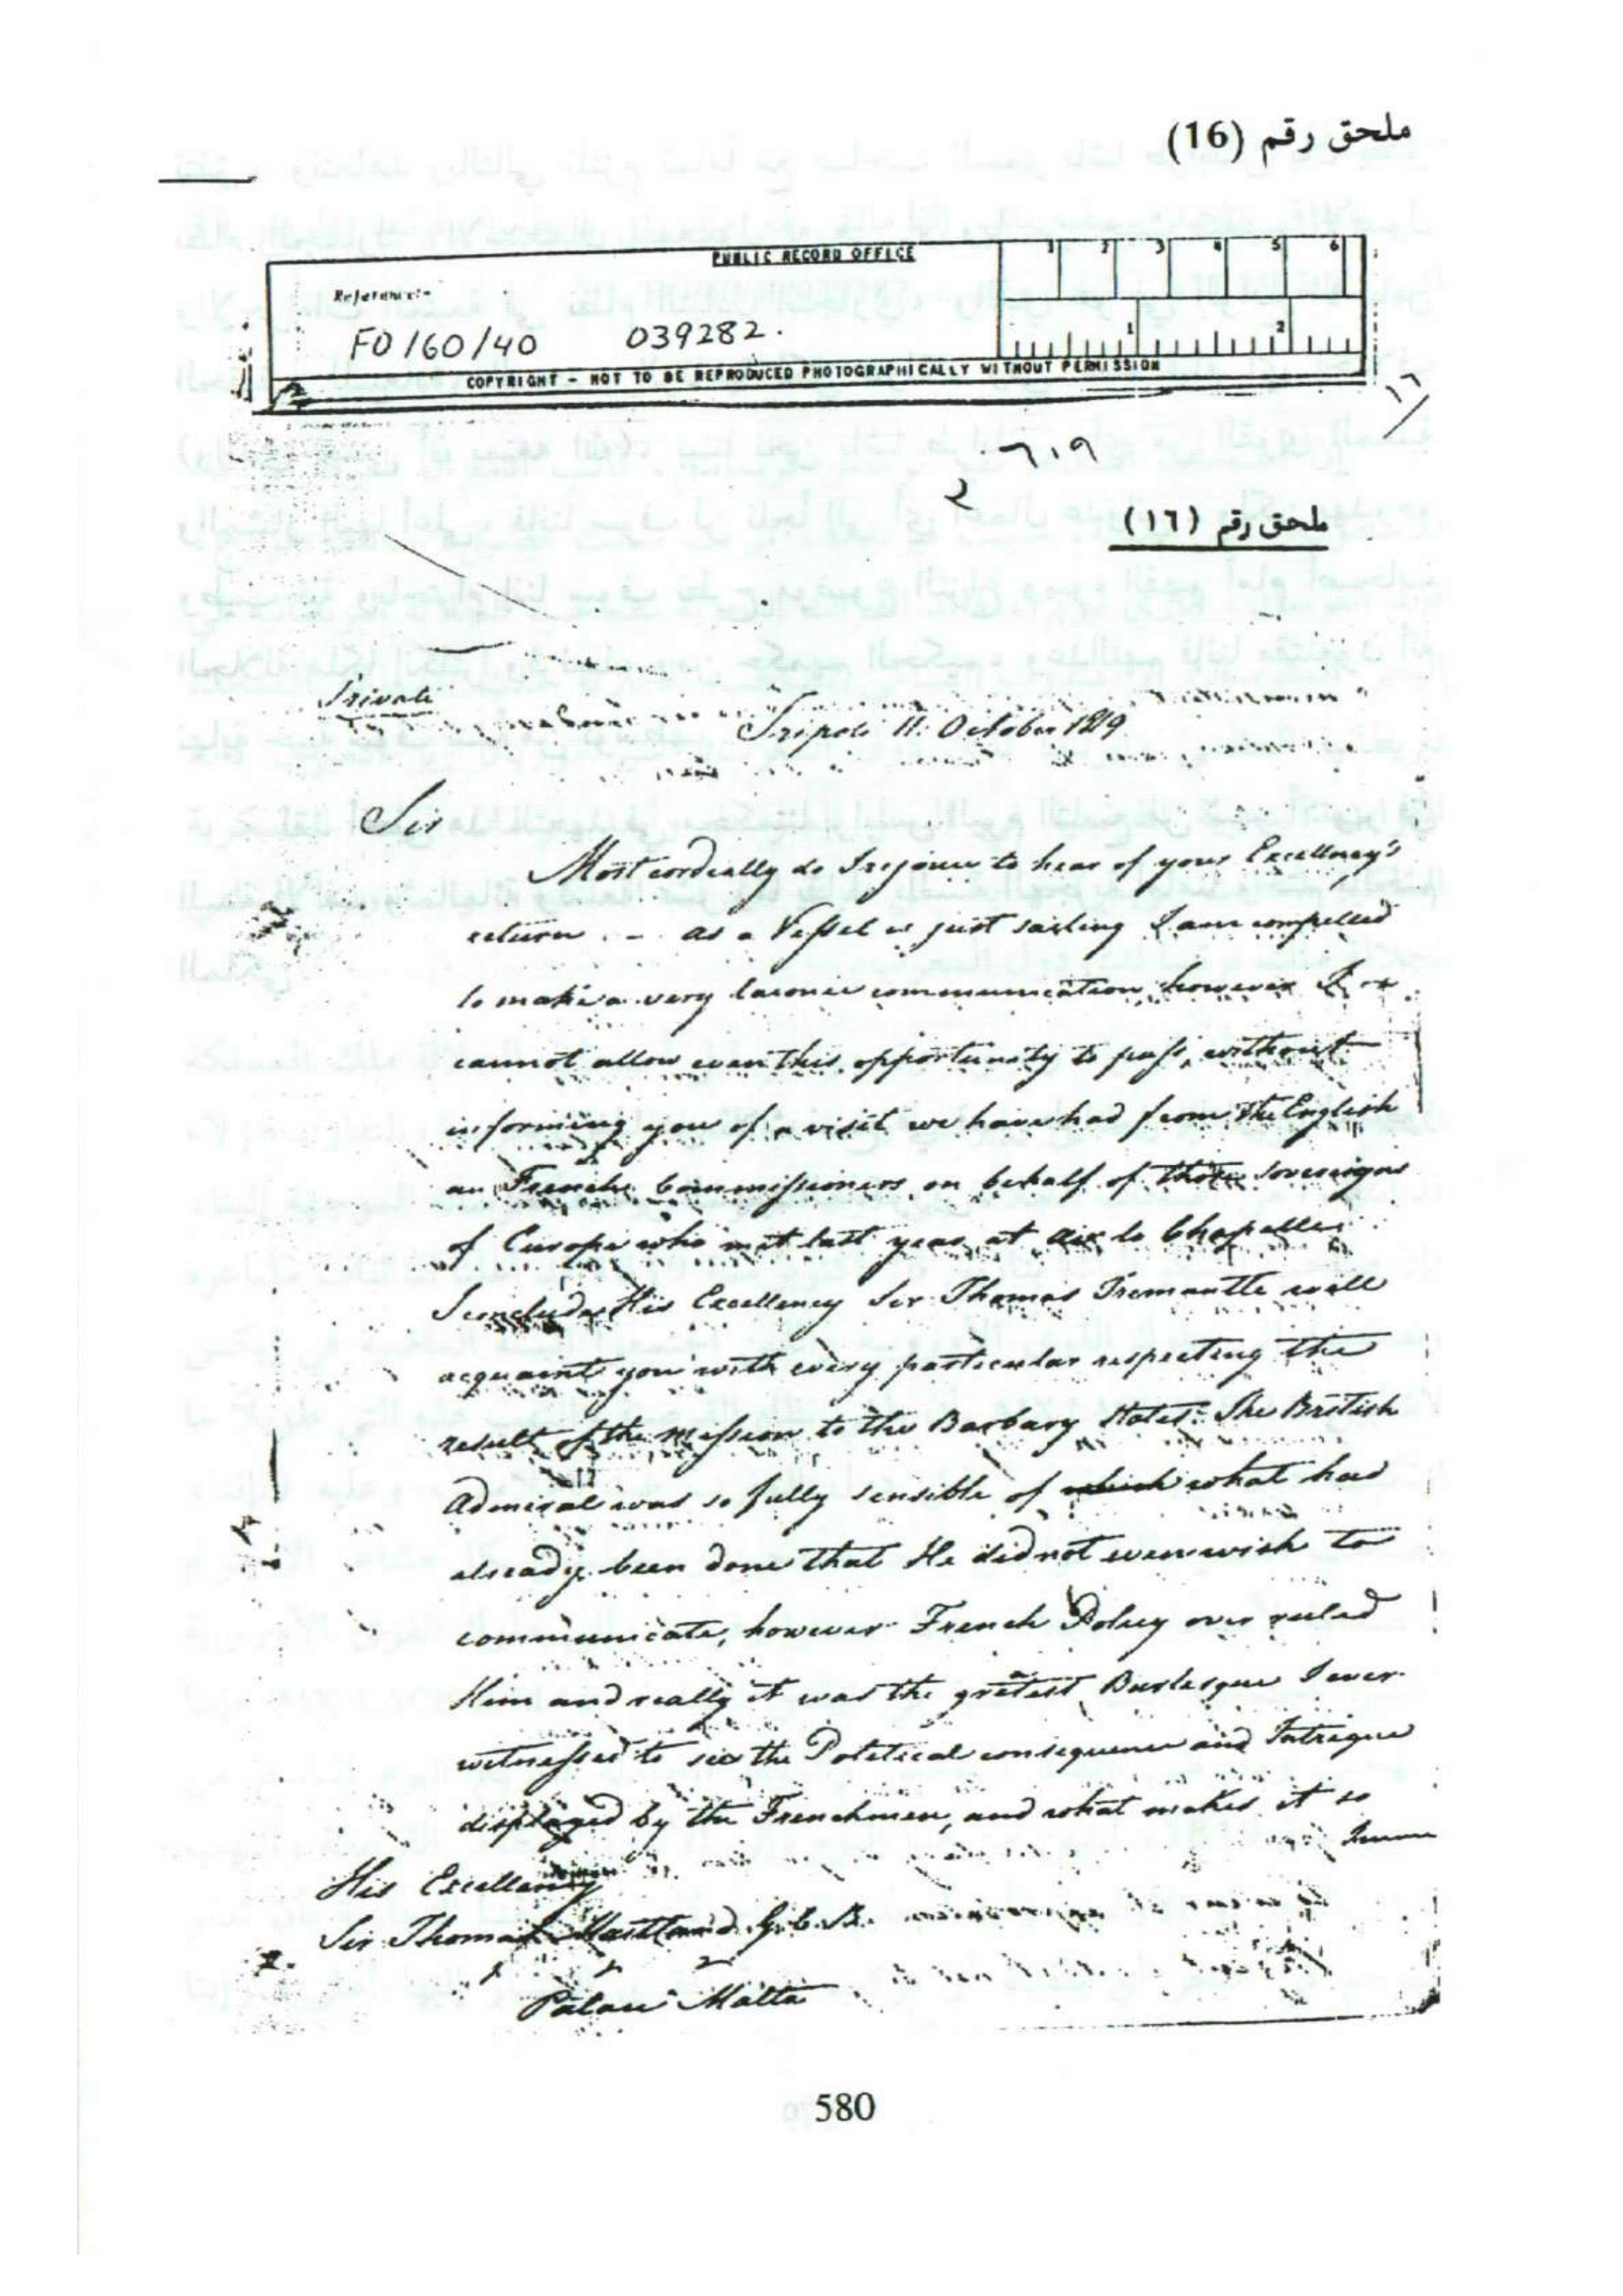 ملحق رقم (16)
PUBLIC RECORD OFFICE
1 2 3 4 5 6
Reference:-
FO 160/40 039282.
1 2
COPYRIGHT - NOT TO BE REPRODUCED PHOTOGRAPHICALLY WITHOUT PERMISSION
١٦
٦٠٩
٢
ملحق رقم (١٦)
Private
Tripoli 11: October 1819
Sir
Most cordially do I rejoice to hear of your Excellency's
return . - as a Vessel is just sailing I am compelled
to make a very laconic communication, however I
cannot allow even this opportunity to pass, without
informing you of a visit we have had from the English
an French Commissioners on behalf of those Sovereigns
of Europe who met last year at Aix la Chapelle
I conclude His Excellency Sir Thomas Fremantle will
acquaint you with every particular respecting the
result of the mission to the Barbary States. The British
Admiral was so fully sensible of which what had
already been done that He did not even wish to
communicate, however French Policy over ruled
Him and really it was the gretest Burlesque I ever
witnessed to see the Political consequence and Intrigue
displayed by the Frenchmen, and what makes it so
His Excellency
Sir Thomas Maitland G.C.B.
Palace Malta
580